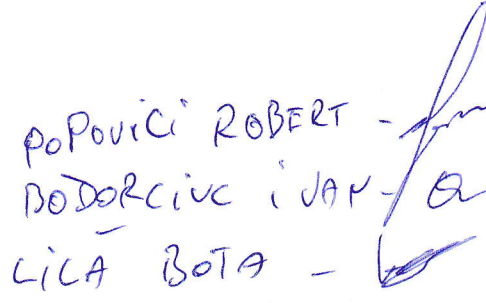 POPOVICI ROBERT -
BODORCIUC IVAN -
LICĂ BOTA -